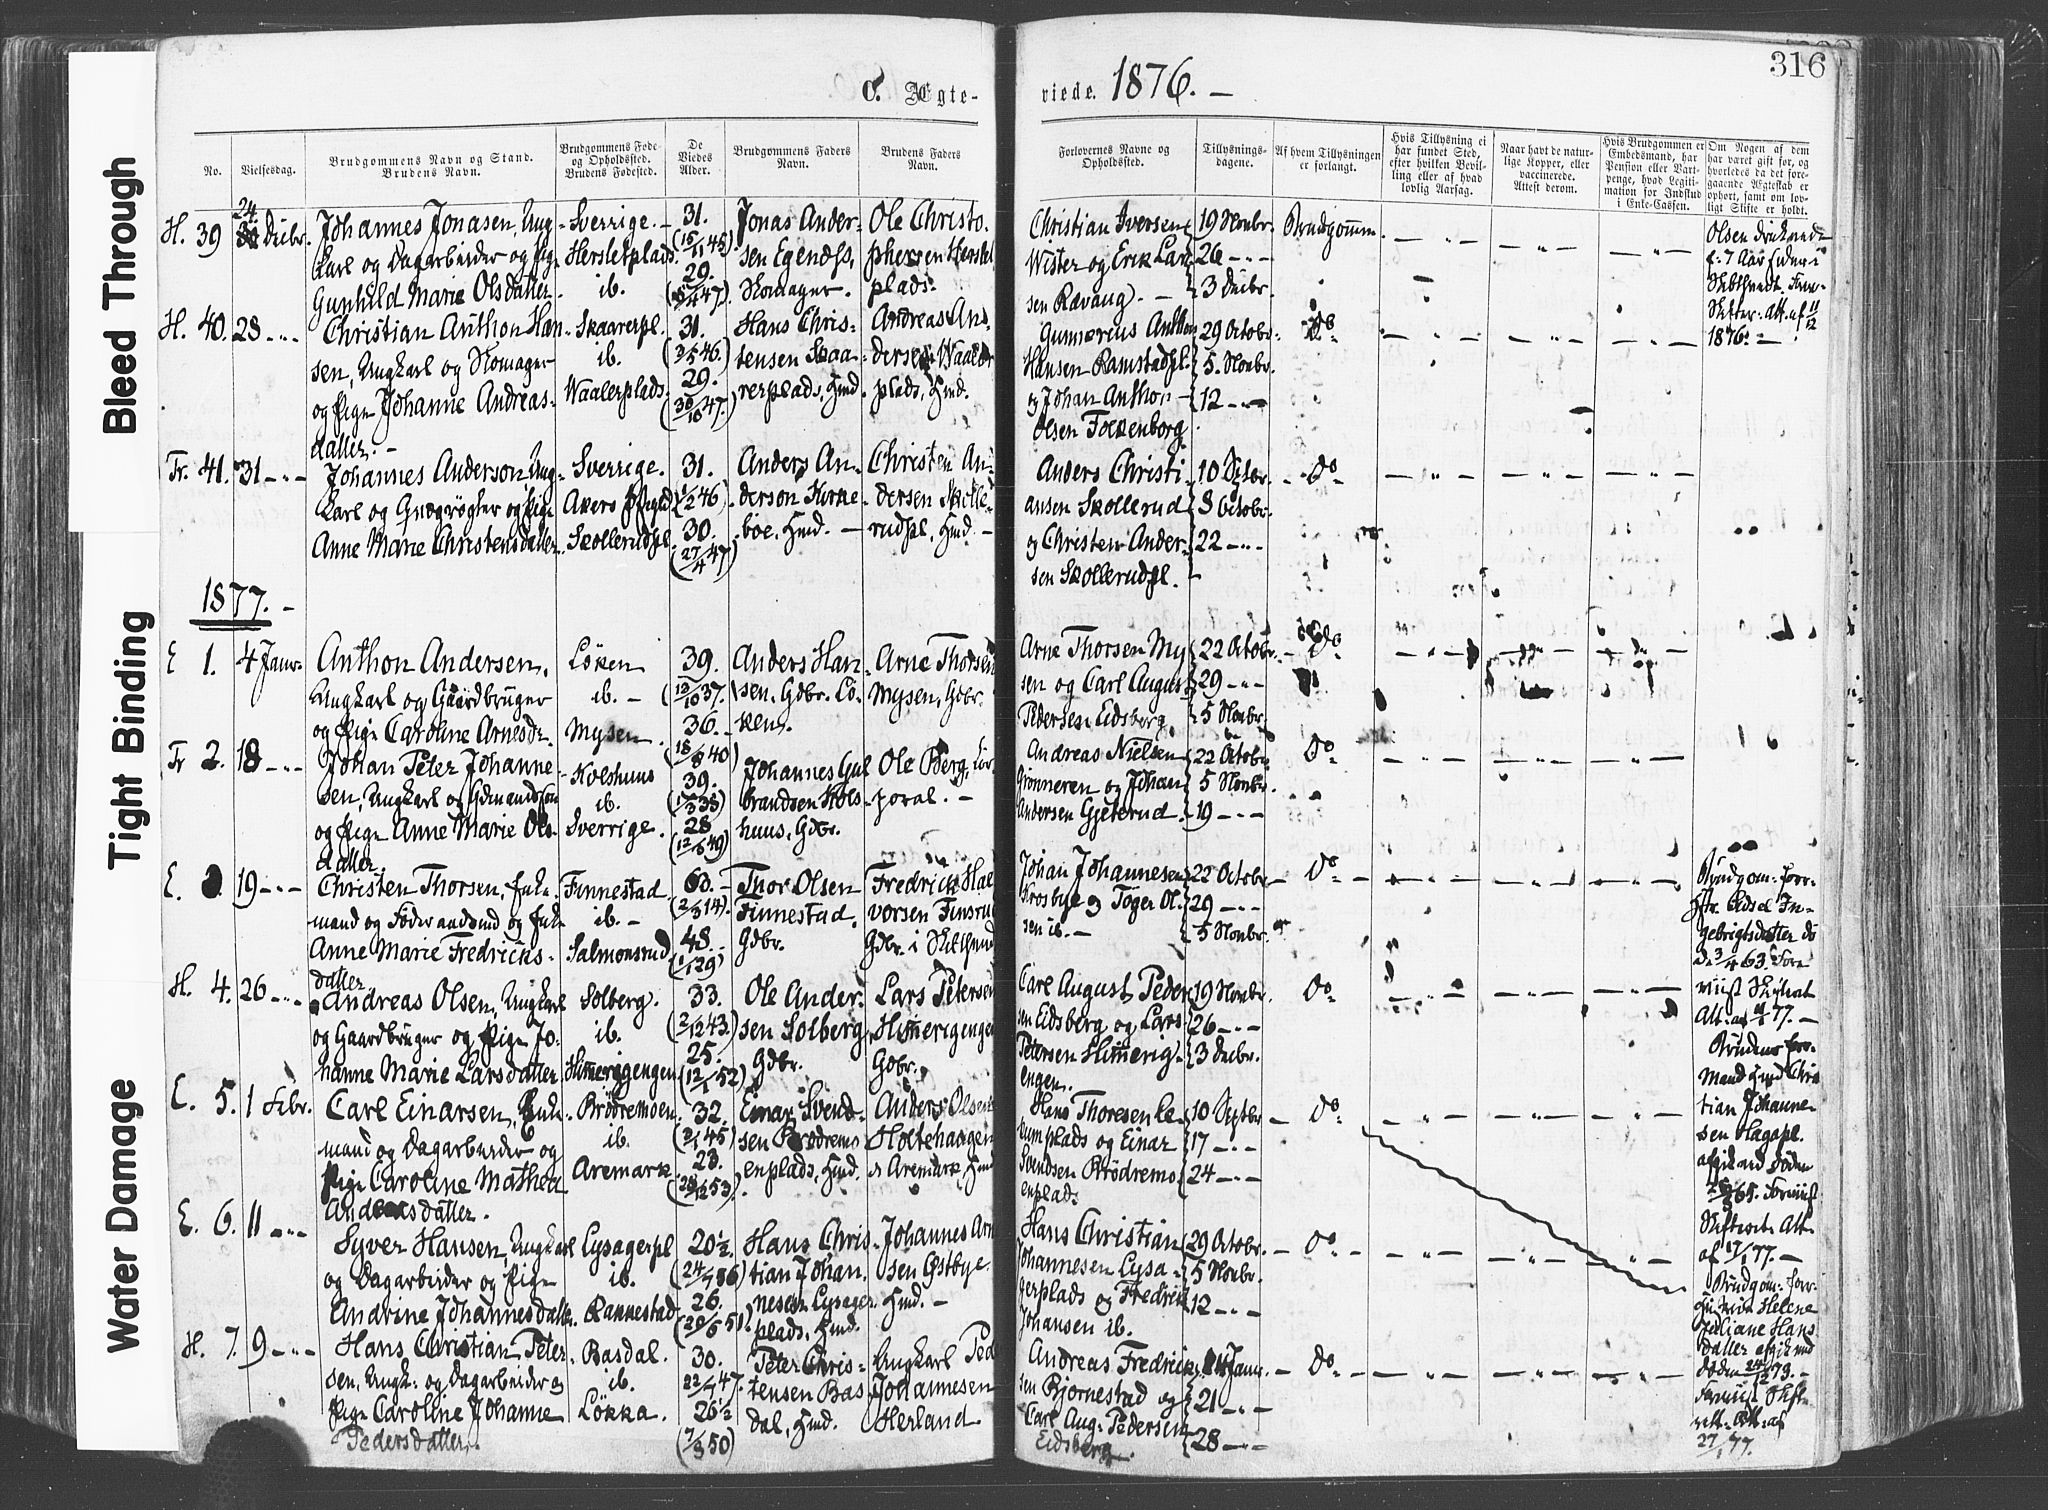 Bleed Through
Tight Binding
Water Damage
316
C. Ægte-
viede. 1876. —
No.
Vielsesdag.
Brudgommens Navn og Stand.
Brudens Navn.
Brudgommens Føde-
og Opholdssted.
Brudens Fødested.
De
Viedes
Alder.
Brudgommens Faders
Navn.
Brudens Faders
Navn.
Forlovernes Navne og
Opholdssted.
Tillysnings-
dagene.
Af hvem Tillysningen
er forlangt.
Hvis Tillysning ei
har fundet Sted,
efter hvilken Bevil-
ling eller af hvad
lovlig Aarsag.
Naar havt de natur-
lige Kopper, eller
vaccinerede.
Attest derom.
Hvis Brudgommen er
Embedsmand, har
Pension eller Vart-
penge, hvad Legiti-
mation for Indskud
i Enke-Cassen.
Om Nogen af dem
har været gift før, og
hvorledes da det fore-
gaaende Ægteskab er
ophørt, samt om lov-
ligt Skifte er holdt.
H. 39
24
Decbr.
Johannes Jonasen, Ung-
karl og Dagarbeider og Pige
Gunhild Marie Olsdatter.
Sverrige. -
Hersletplads.
ib.
31.
(15/11 45)
29.
Jonas Ander-
sen Egendsf,
Skomager.
Ole Christo-
phersen Herslet
plads.
Christian Iversen
Wister og Erik Lar-
sen Rævaug. -
19 Novbr.
26 - " -
3 Decbr.
Brudgomm.
Olsen
1876.
H. 40.
28 - " -
Christian Anthon Han-
sen, Ungkarl og Skomager
og Pige Johanne Andreas-
datter. -
Skaarerpl.
ib.
Waalerplads.
31.
29.
(30/10 47.)
Hans Chris-
tensen Skaa-
rerplads, Hmd.
Andreas An-
dersen Waaler
plads, Hmd.
Gunnerius Anthon
Hansen Ramstadpl.
og Johan Anthon
Olsen Folkenborg.
29 Octobr.
5. Novbr.
12 - " -
Do
Tr. 41.
31 - " -
Johannes Anderson, Ung-
karl og Gaardsrøgter og Pige
Anne Marie Christensdatter
Sverrige.
Akers Pgjld
Skollerudpl.
31.
(1/2 46)
30.
(27/4 47)
Anders An-
derson Kirke-
boe, Hmd. -
Christen An-
dersen Skolle-
rudpl, Hmd. -
Anders Christi-
ansen Skollerud
og Christen Ander-
sen Skollerudpl.
10 Septbr.
8 Octobr.
22 - " -
Do
1877. -
E 1.
4 Janr.
Anthon Andersen,
Ungkarl og Gaardbruger
og Pige Caroline Arnesdr.
Løken
ib. -
Mysen
39.
(12/10 37.)
36.
(18/8 40)
Anders Han-
sen, Gdbr. Lø-
ken.
Arne Thorsen
Mysen, Gdbr.
Arne Thorsen My-
sen og Carl August
Pedersen Eidsberg,
22 Octobr.
29 - " -
5 Novbr.
Do
Tr 2.
18 - " -
Johan Peter Johanne-
sen, Ungkarl og Gdmandssøn
og Pige Anne Marie Ols-
datter
Kolshuus
ib.
Sverrige.
39.
28
(12/5 49)
Johannes Gul
brandsen Kols-
huus, Gdbr.
Ole Berg, Cor-
poral. -
Andreas Nielsen
Grønneren og Johan
Andersen Gjeterud.
22 Octobr.
5 Novbr.
19 - " -
Do
E. 3.
19 - " -
Christen Thorsen, Enke-
mand og Føderaadsmd og Enke
Anne Marie Fredricks-
datter
Finnestad
ib. -
Salmonsrud
63. -
(2/3 14)
48.
(1/1 29)
Thor Olsen
Finnestad,
Gdbr.
Fredrick Hal-
vorsen Finsrud
Gdbr. i Skibtvedt
Johan Johannesen
Krosbye og Tøger Ol-
sen ib. -
22 Octobr.
29 - " -
5 Novbr.
Do
Brudgom: forr-
Htr. Edsel In-
gebrigtsdatter dø-
de 3/4 63. Fore-
viist Skifteat-
Att. af 77. -
H. 4.
26 - " -
Andreas Olsen, Ungkarl
og Gaardbruger og Pige Jo-
hanne Marie Larsdatter
Solberg.
ib.
Himerigengen
33.
(2/12 43.)
25.
(12/1 52)
Ole Ander-
sen Solberg,
Gdbr.
Lars Petersen
Himerigengen
Gdbr.
Carl August Peder-
sen Eidsberg og Lars
Petersen Himerig-
engen.
19 Novbr.
26 - " -
3 Decbr.
Do
Brudens for-
Mand Hmd Chris
tian Johanne-
sen Hagapl.
afgik ved Døden
65. Foreviist
Skifteret. Att.
af 17/1 77. -
E. 5.
1 Febr.
Carl Einarsen, Enke-
mand og Dagarbeider og
Pige Caroline Mathea
Andersdatter.
Brødremoen
ib.
Aremark
32.
(2/1 45)
23.
(28/12 53)
Einar Svend-
sen Brødremo-
enplads, Hmd.
Anders Olsen
Holtehaugen
i Aremark, Hmd
Hans Thoresen Le-
rumplads og Einar
Svendsen Brødremo-
enplads.
10 Septbr
17 - " -
24 - " -
Do
Brudgom: forr-
Hustru Helene
Juliane Hans
datter afgik ved
Døden 24/12 73. -
Foreviist Skift-
rett. Att. af
27/1 77.
E. 6.
11 - " -
Syver Hansen, Ungkarl
og Dagarbeider og Pige
Andrine Johannesdatter
Lysagerpl
ib.
Rannestad
20½.
26.
Hans Chris-
tian Johan-
nesen Lysager-
plads, Hmd.
Johannes Arn
sen Østbye
Hmd. -
Hans Christian
Johannesen Lysa-
gerplads og Fredrik
Johansen ib.
29 Octobr.
5 Novbr.
12 - " -
Do
H. 7.
9 - " -
Hans Christian Peter-
sen, Ungk. og Dagarbeider og
Pige Caroline Johanne
Pedersdatter.
Basdal.
ib.
Løkka.
30.
26½
(7/3 50)
Peter Chris-
tensen Bas-
dal, Hmd.
Ungkarl Peder
Johannesen
Herland
Andreas Fredrick-
sen Bjørnestad og
Carl Aug. Pedersen
Eidsberg.
14 Janr.
21 - " -
28 - " -
Do